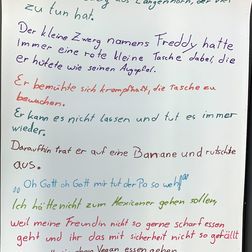 aus Langenhorn, der viel
zu tun hat.
Der kleine Zwerg namens Freddy hatte
Immer eine rote kleine Tasche dabei die
er hütete wie seinen Augapfel.
Er bemühte sich krampfhaft, die Tasche zu
bewachen.
Er kann es nicht lassen und tut es immer
wieder.
Daraufhin trat er auf eine Banane und rutschte
aus.
"Oh Gott oh Gott mir tut der Po so weh"
Ich hätte nicht zum Mexicaner gehen sollen,
weil meine Freundin nicht so gerne scharf essen
geht und ihr das mit sicherheit nicht so gefällt
Vegan essen gehen